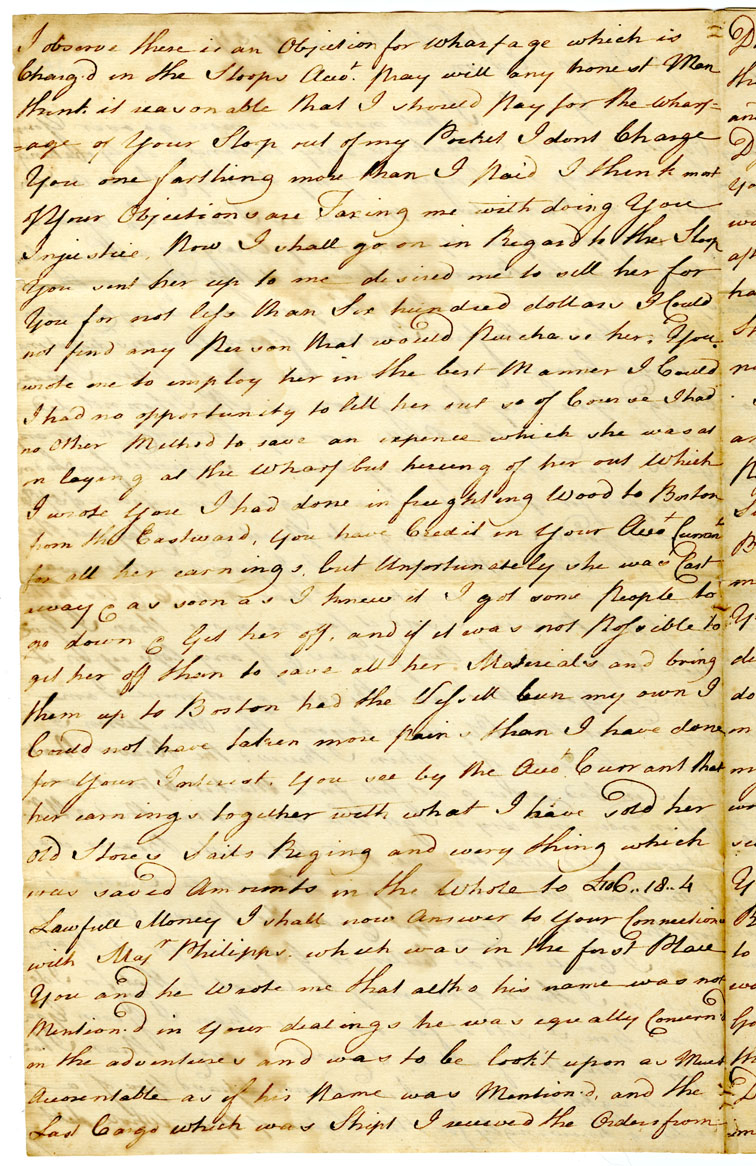 I observe there is an Objection for wharfage which is
Charg'd in the Sloops Accot. pray will any honest Man
think it reasonable that I should pay for the wharf=
=age of Your Sloop out of my Pocket I dont Charge
You one farthing more than I paid I think most
of Your Objections are Taxing me with doing You
Injustice, Now I shall go on in Regard to the Sloop
You sent her up to me desired me to sell her for
You for not less than Six hundred dollars I Could
not find any Person that would Purchase her, You
wrote me to employ her in the best Manner I Could
I had no opportunity to lett her out so of Course I had
no Other Method to save an expence which she was at
in laying at the Wharf but hireing of her out Which
I wrote You I had done in freighting Wood to Boston
from the Eastward, You have Credit in Your Accot. Currant
for all her earnings, but Unfortunately she was Cast
away & as soon as I knew it I got some People to
go down & Get her off, and if it was not Possible to
get her off them to save all her Materials and bring
them up to Boston had the Vessell been my own I
Could not have taken more pains than I have done
for Your Interest, You see by the Accot. Currant that
her earnings together with what I have sold her
Old Stores Sails Riging and every thing which
was saved Amounts in the Whole to £106..18..4
Lawfull Money I shall now Answer to Your Connection
with Majr Philipps, which was in the first Place
You and he Wrote me that altho his name was not
Mention'd in Your dealings he was equally Concern'd
in the adventures and was to be look't upon as Much
Accountable as if his Name was Mention'd, and the
Last Cargo which was Shipt I received the Orders from